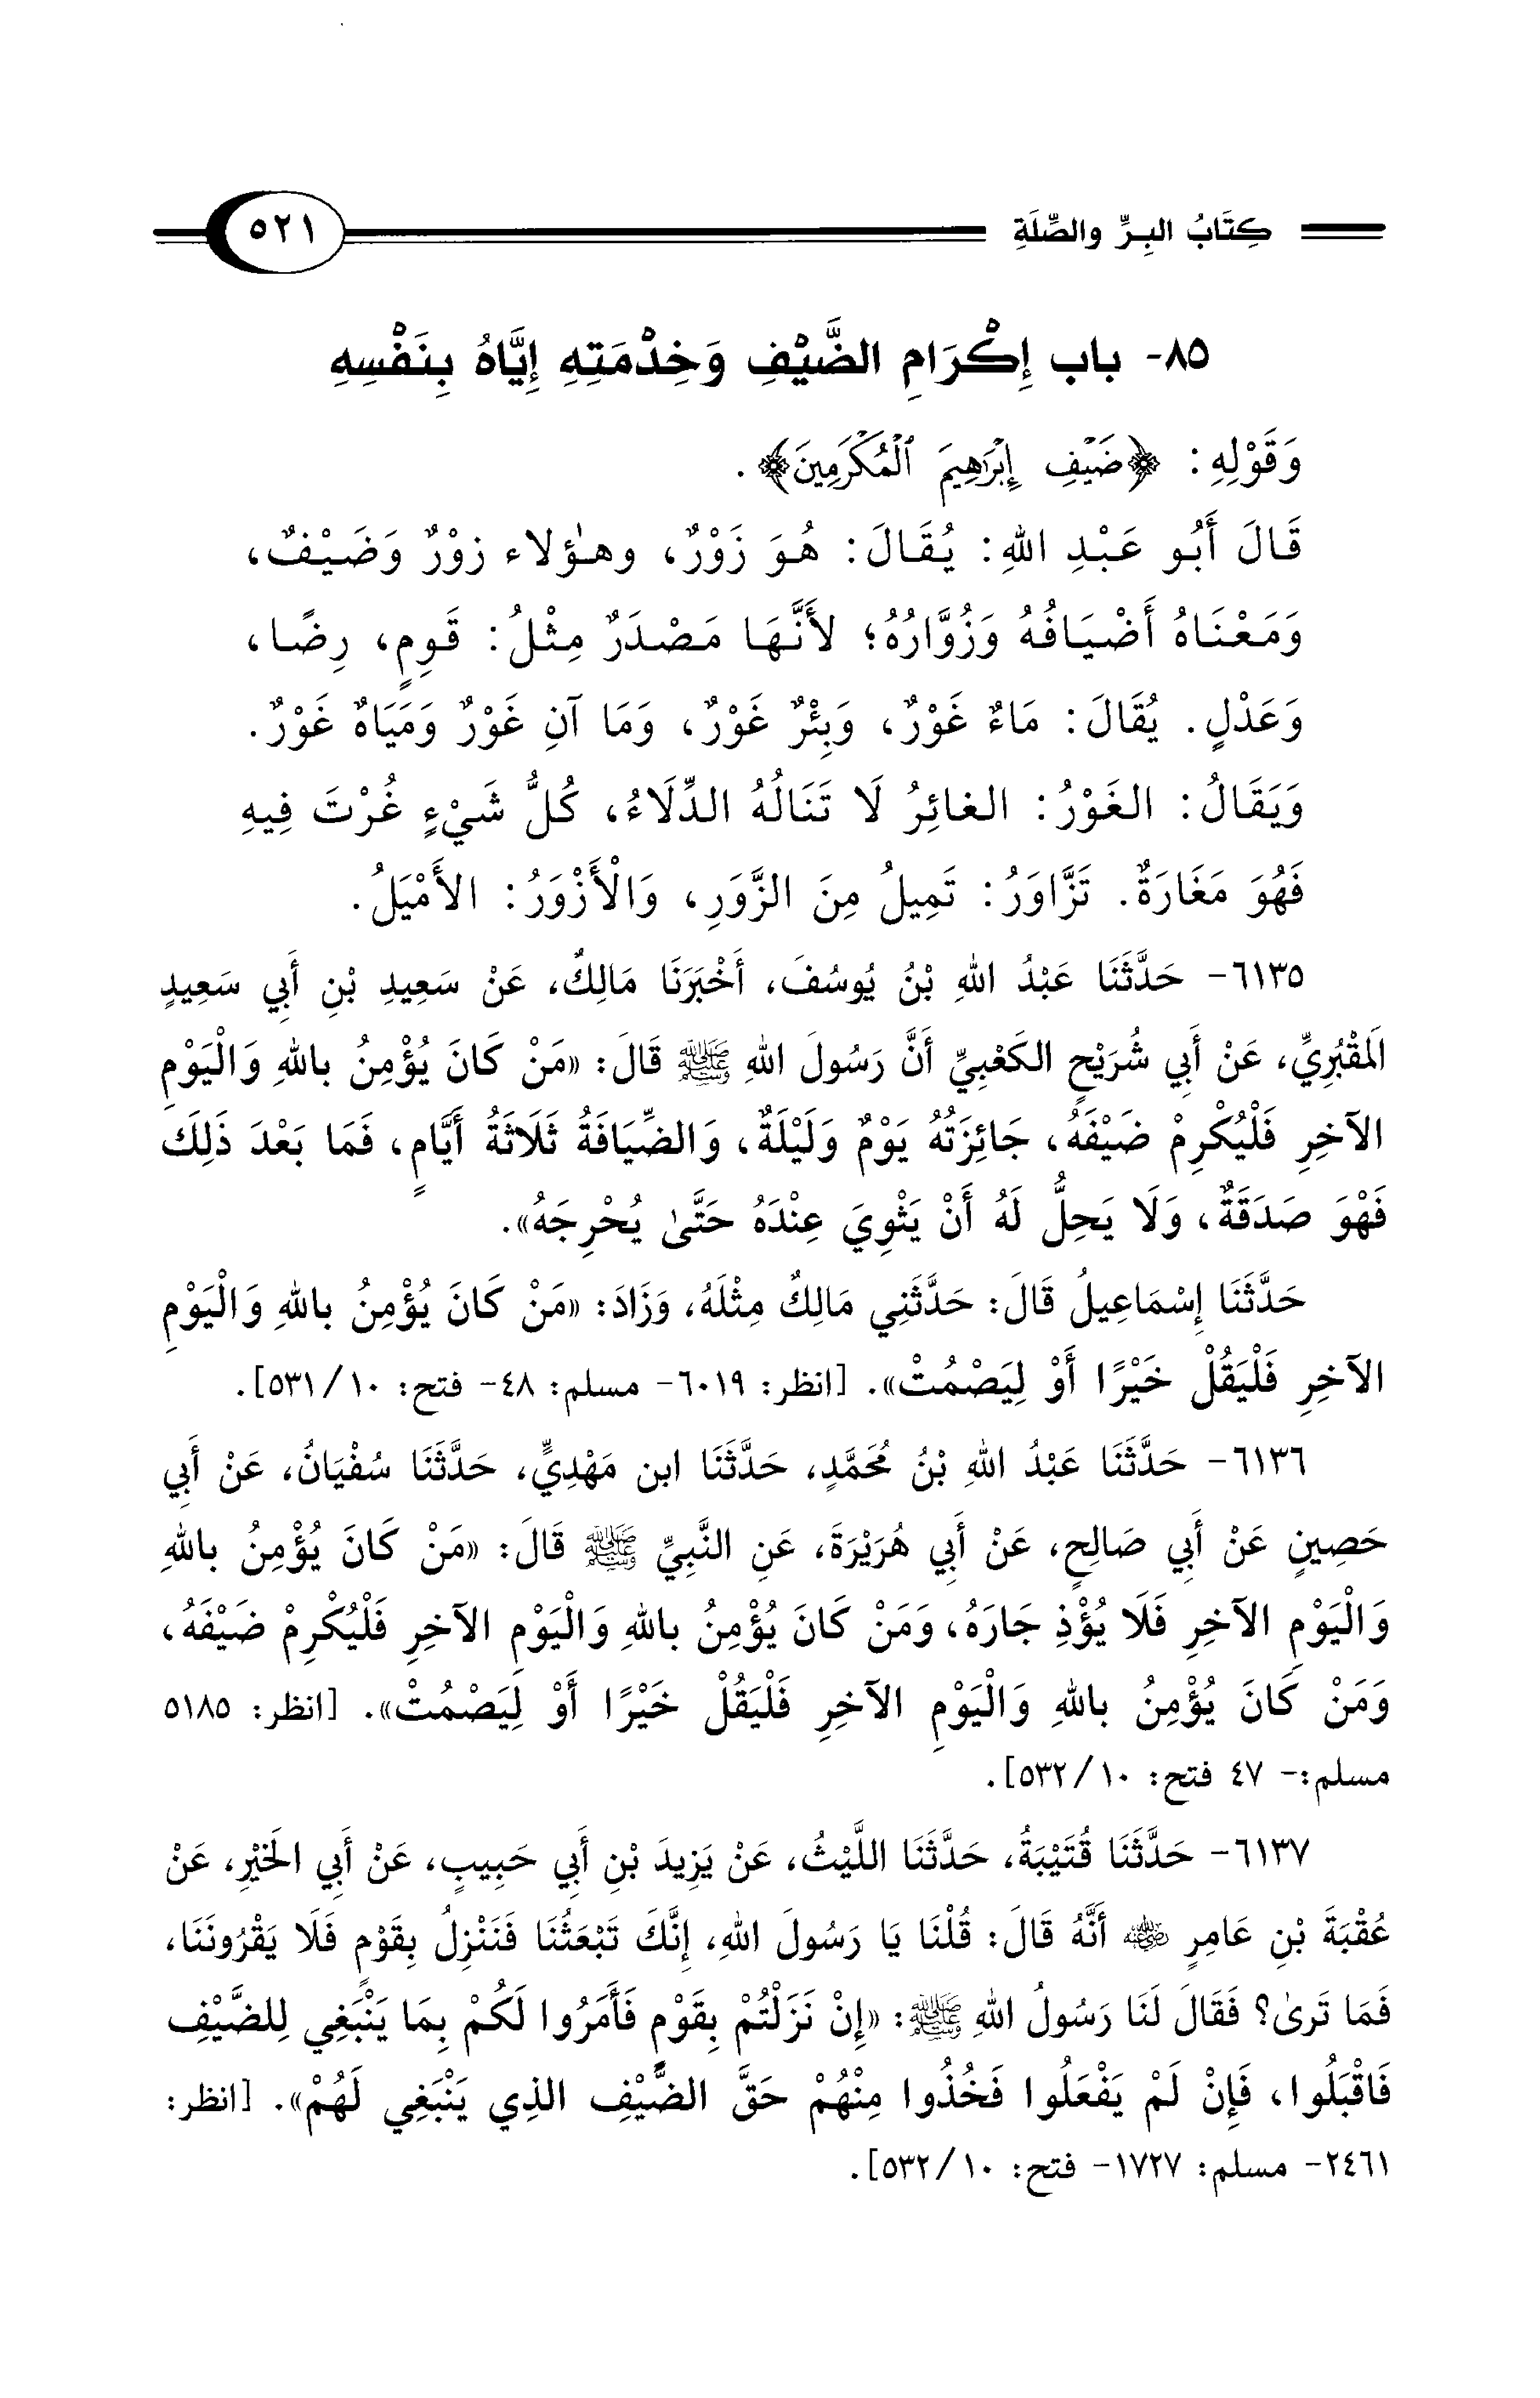 كِتَابُ البِـرِّ والصِّلَةِ ٥٢١
٨٥- باب إِكْرَامِ الضَّيْفِ وَخِدْمَتِهِ إِيَّاهُ بِنَفْسِهِ
وَقَوْلِهِ: ﴿ضَيْفِ إِبْرَاهِيمَ ٱلْمُكْرَمِينَ﴾.
قَالَ أَبُو عَبْدِ اللهِ: يُقَالَ: هُوَ زَوْرٌ، وهـٰؤلاء زوْرٌ وَضَيْفٌ،
وَمَعْنَاهُ أَضْيَافُهُ وَزُوَّارُهُ؛ لأَنَّهَا مَصْدَرٌ مِثْلُ: قَومٍ، رِضًا،
وَعَدْلٍ. يُقَالَ: مَاءٌ غَوْرٌ، وَبِئْرٌ غَوْرٌ، وَمَا آنِ غَوْرٌ وَمَيَاهٌ غَوْرٌ.
وَيَقَالُ: الغَوْرُ: الغائِرُ لَا تَنَالُهُ الدِّلَاءُ، كُلُّ شَيْءٍ غُرْتَ فِيهِ
فَهُوَ مَغَارَةٌ. تَزَّاوَرُ: تَمِيلُ مِنَ الزَّوَرِ، وَالْأَزْوَرُ: الأَمْيَلُ.
٦١٣٥- حَدَّثَنَا عَبْدُ اللهِ بْنُ يُوسُفَ، أَخْبَرَنَا مَالِكٌ، عَنْ سَعِيدِ بْنِ أَبِي سَعِيدٍ
المَقْبُرِيِّ، عَنْ أَبِي شُرَيْحٍ الكَعْبِيِّ أَنَّ رَسُولَ اللهِ ﷺ قَالَ: «مَنْ كَانَ يُؤْمِنُ باللهِ وَالْيَوْمِ
الآخِرِ فَلْيُكْرِمْ ضَيْفَهُ، جَائِزَتُهُ يَوْمٌ وَلَيْلَةٌ، وَالضِّيَافَةُ ثَلَاثَةُ أَيَّامٍ، فَمَا بَعْدَ ذَلِكَ
فَهْوَ صَدَقَةٌ، وَلَا يَحِلُّ لَهُ أَنْ يَثْوِيَ عِنْدَهُ حَتَّىٰ يُحْرِجَهُ».
حَدَّثَنَا إِسْمَاعِيلُ قَالَ: حَدَّثَنِي مَالِكٌ مِثْلَهُ، وَزَادَ: «مَنْ كَانَ يُؤْمِنُ باللهِ وَالْيَوْمِ
الآخِرِ فَلْيَقُلْ خَيْرًا أَوْ لِيَصْمُتْ». [انظر: ٦٠١٩- مسلم: ٤٨- فتح: ١٠/٥٣١].
٦١٣٦- حَدَّثَنَا عَبْدُ اللهِ بْنُ مُحَمَّدٍ، حَدَّثَنَا ابن مَهْدِيٍّ، حَدَّثَنَا سُفْيَانُ، عَنْ أَبِي
حَصِينٍ عَنْ أَبِي صَالِحٍ، عَنْ أَبِي هُرَيْرَةَ، عَنِ النَّبِيِّ ﷺ قَالَ: «مَنْ كَانَ يُؤْمِنُ باللهِ
وَالْيَوْمِ الآخِرِ فَلَا يُؤْذِ جَارَهُ، وَمَنْ كَانَ يُؤْمِنُ باللهِ وَالْيَوْمِ الآخِرِ فَلْيُكْرِمْ ضَيْفَهُ،
وَمَنْ كَانَ يُؤْمِنُ باللهِ وَالْيَوْمِ الآخِرِ فَلْيَقُلْ خَيْرًا أَوْ لِيَصْمُتْ». [انظر: ٥١٨٥
مسلم:- ٤٧ فتح: ١٠/٥٣٢].
٦١٣٧- حَدَّثَنَا قُتَيْبَةُ، حَدَّثَنَا اللَّيْثُ، عَنْ يَزِيدَ بْنِ أَبِي حَبِيبٍ، عَنْ أَبِي الخَيْرِ، عَنْ
عُقْبَةَ بْنِ عَامِرٍ ﷺ أَنَّهُ قَالَ: قُلْنَا يَا رَسُولَ اللهِ، إِنَّكَ تَبْعَثُنَا فَنَنْزِلُ بِقَوْمٍ فَلَا يَقْرُونَنَا،
فَمَا تَرىٰ؟ فَقَالَ لَنَا رَسُولُ اللهِ ﷺ: «إِنْ نَزَلْتُمْ بِقَوْمٍ فَأَمَرُوا لَكُمْ بِمَا يَنْبَغِي لِلضَّيْفِ
فَاقْبَلُوا، فَإِنْ لَمْ يَفْعَلُوا فَخُذُوا مِنْهُمْ حَقَّ الضَّيْفِ الذِي يَنْبَغِي لَهُمْ». [انظر:
٢٤٦١- مسلم: ١٧٢٧- فتح: ١٠/٥٣٢].